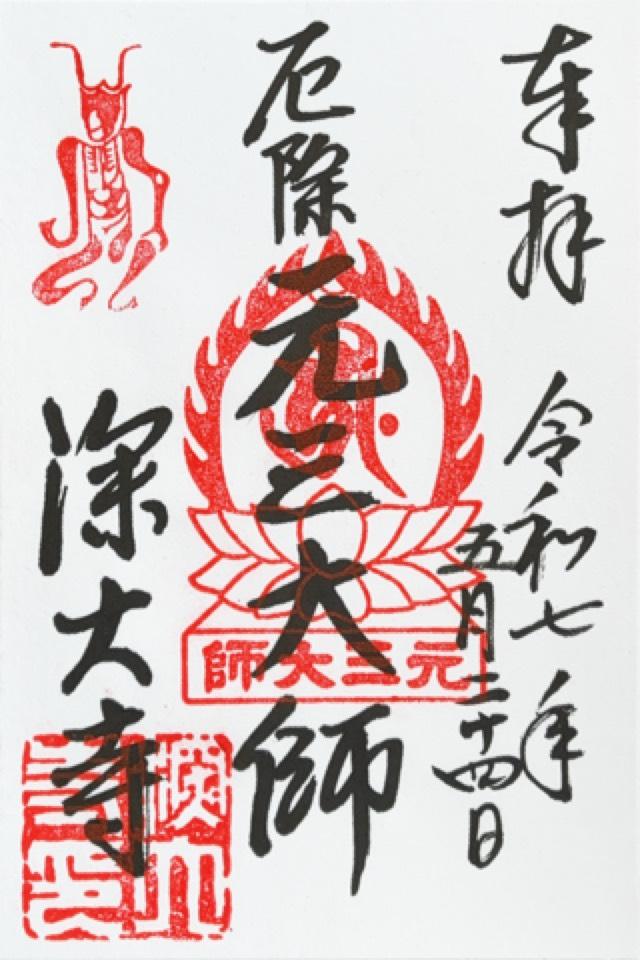 奉拝
令和七年
五月二十四日
厄除
元三大師
師大三元
深大寺